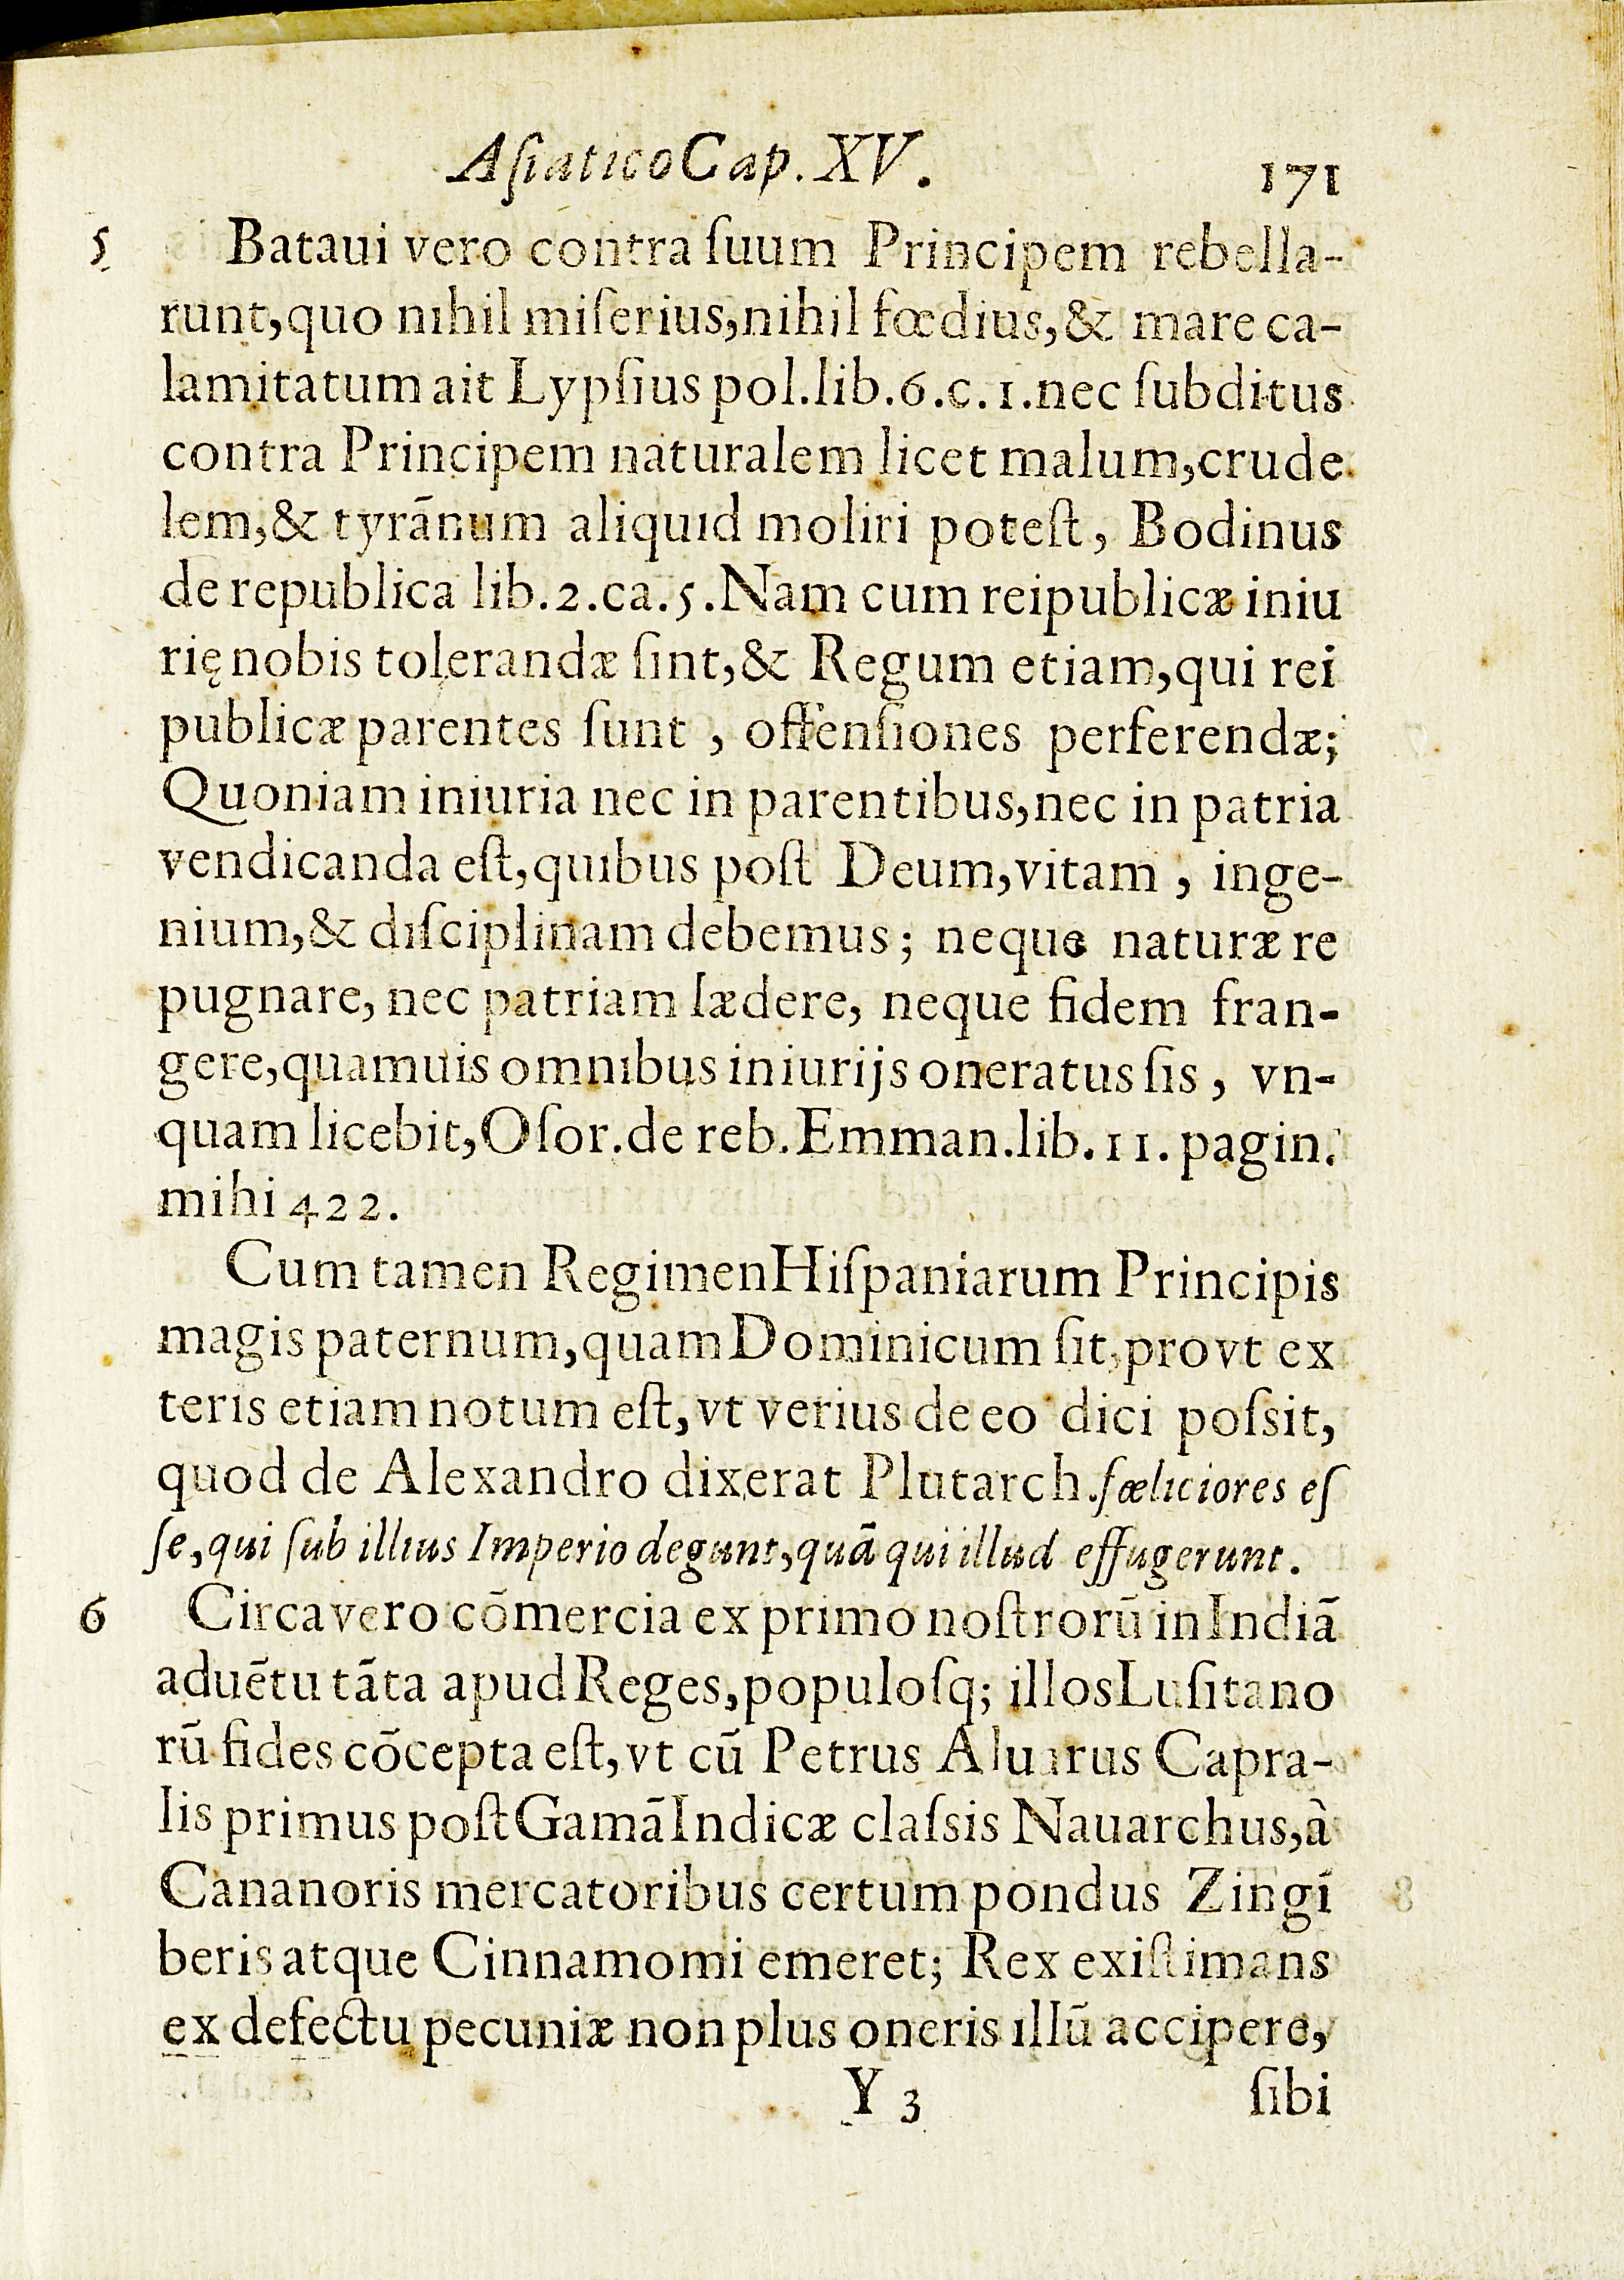 Aſiatico Cap. XV. 171
5 Bataui vero contra ſuum Principem rebella-
runt, quo nihil miſerius, nihil fœdius, & mare ca-
lamitatum ait Lypſius pol. lib. 6. c. 1. nec ſubditus
contra Principem naturalem licet malum, crude
lem, & tyrãnum aliquid moliri poteſt, Bodinus
de republica lib. 2. ca. 5. Nam cum reipublicæ iniu
rię nobis tolerandæ ſint, & Regum etiam, qui rei
publicæ parentes ſunt, offenſiones perferendæ;
Quoniam iniuria nec in parentibus, nec in patria
vendicanda eſt, quibus poſt Deum, vitam, inge-
nium, & diſciplinam debemus; neque naturæ re
pugnare, nec patriam lædere, neque fidem fran-
gere, quamuis omnibus iniurijs oneratus ſis, vn-
quam licebit, Oſor. de reb. Emman. lib. 11. pagin.
mihi 422.
Cum tamen Regimen Hiſpaniarum Principis
magis paternum, quam Dominicum ſit, provt ex
teris etiam notum eſt, vt verius de eo dici poſsit,
quod de Alexandro dixerat Plutarch. fœliciores eſ
ſe, qui ſub illius Imperio degunt, quã qui illud effugerunt.
6 Circa vero cõmercia ex primo noſtrorũ in Indiã
aduẽtu tãta apud Reges, populoſq; illos Luſitano
rũ fides cõcepta eſt, vt cũ Petrus Aluarus Capra-
lis primus poſt Gamã Indicæ claſsis Nauarchus, à
Cananoris mercatoribus certum pondus Zingi
beris atque Cinnamomi emeret; Rex exiſtimans
ex defectu pecuniæ non plus oneris illũ accipere,
Y 3 ſibi